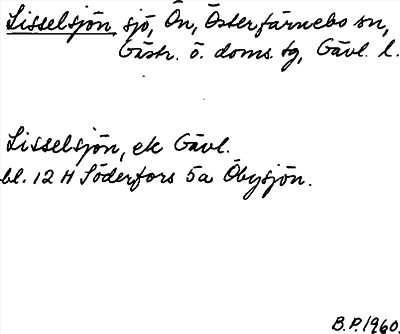 Lisselsjön sjö, Ön, Österfärnebo sn,
Gästr. ö. doms. tg, Gävl. l.
Lisselsjön, ek Gävl.
bl. 12 H Söderfors 5a Öbysjön.
B.P. 1960.